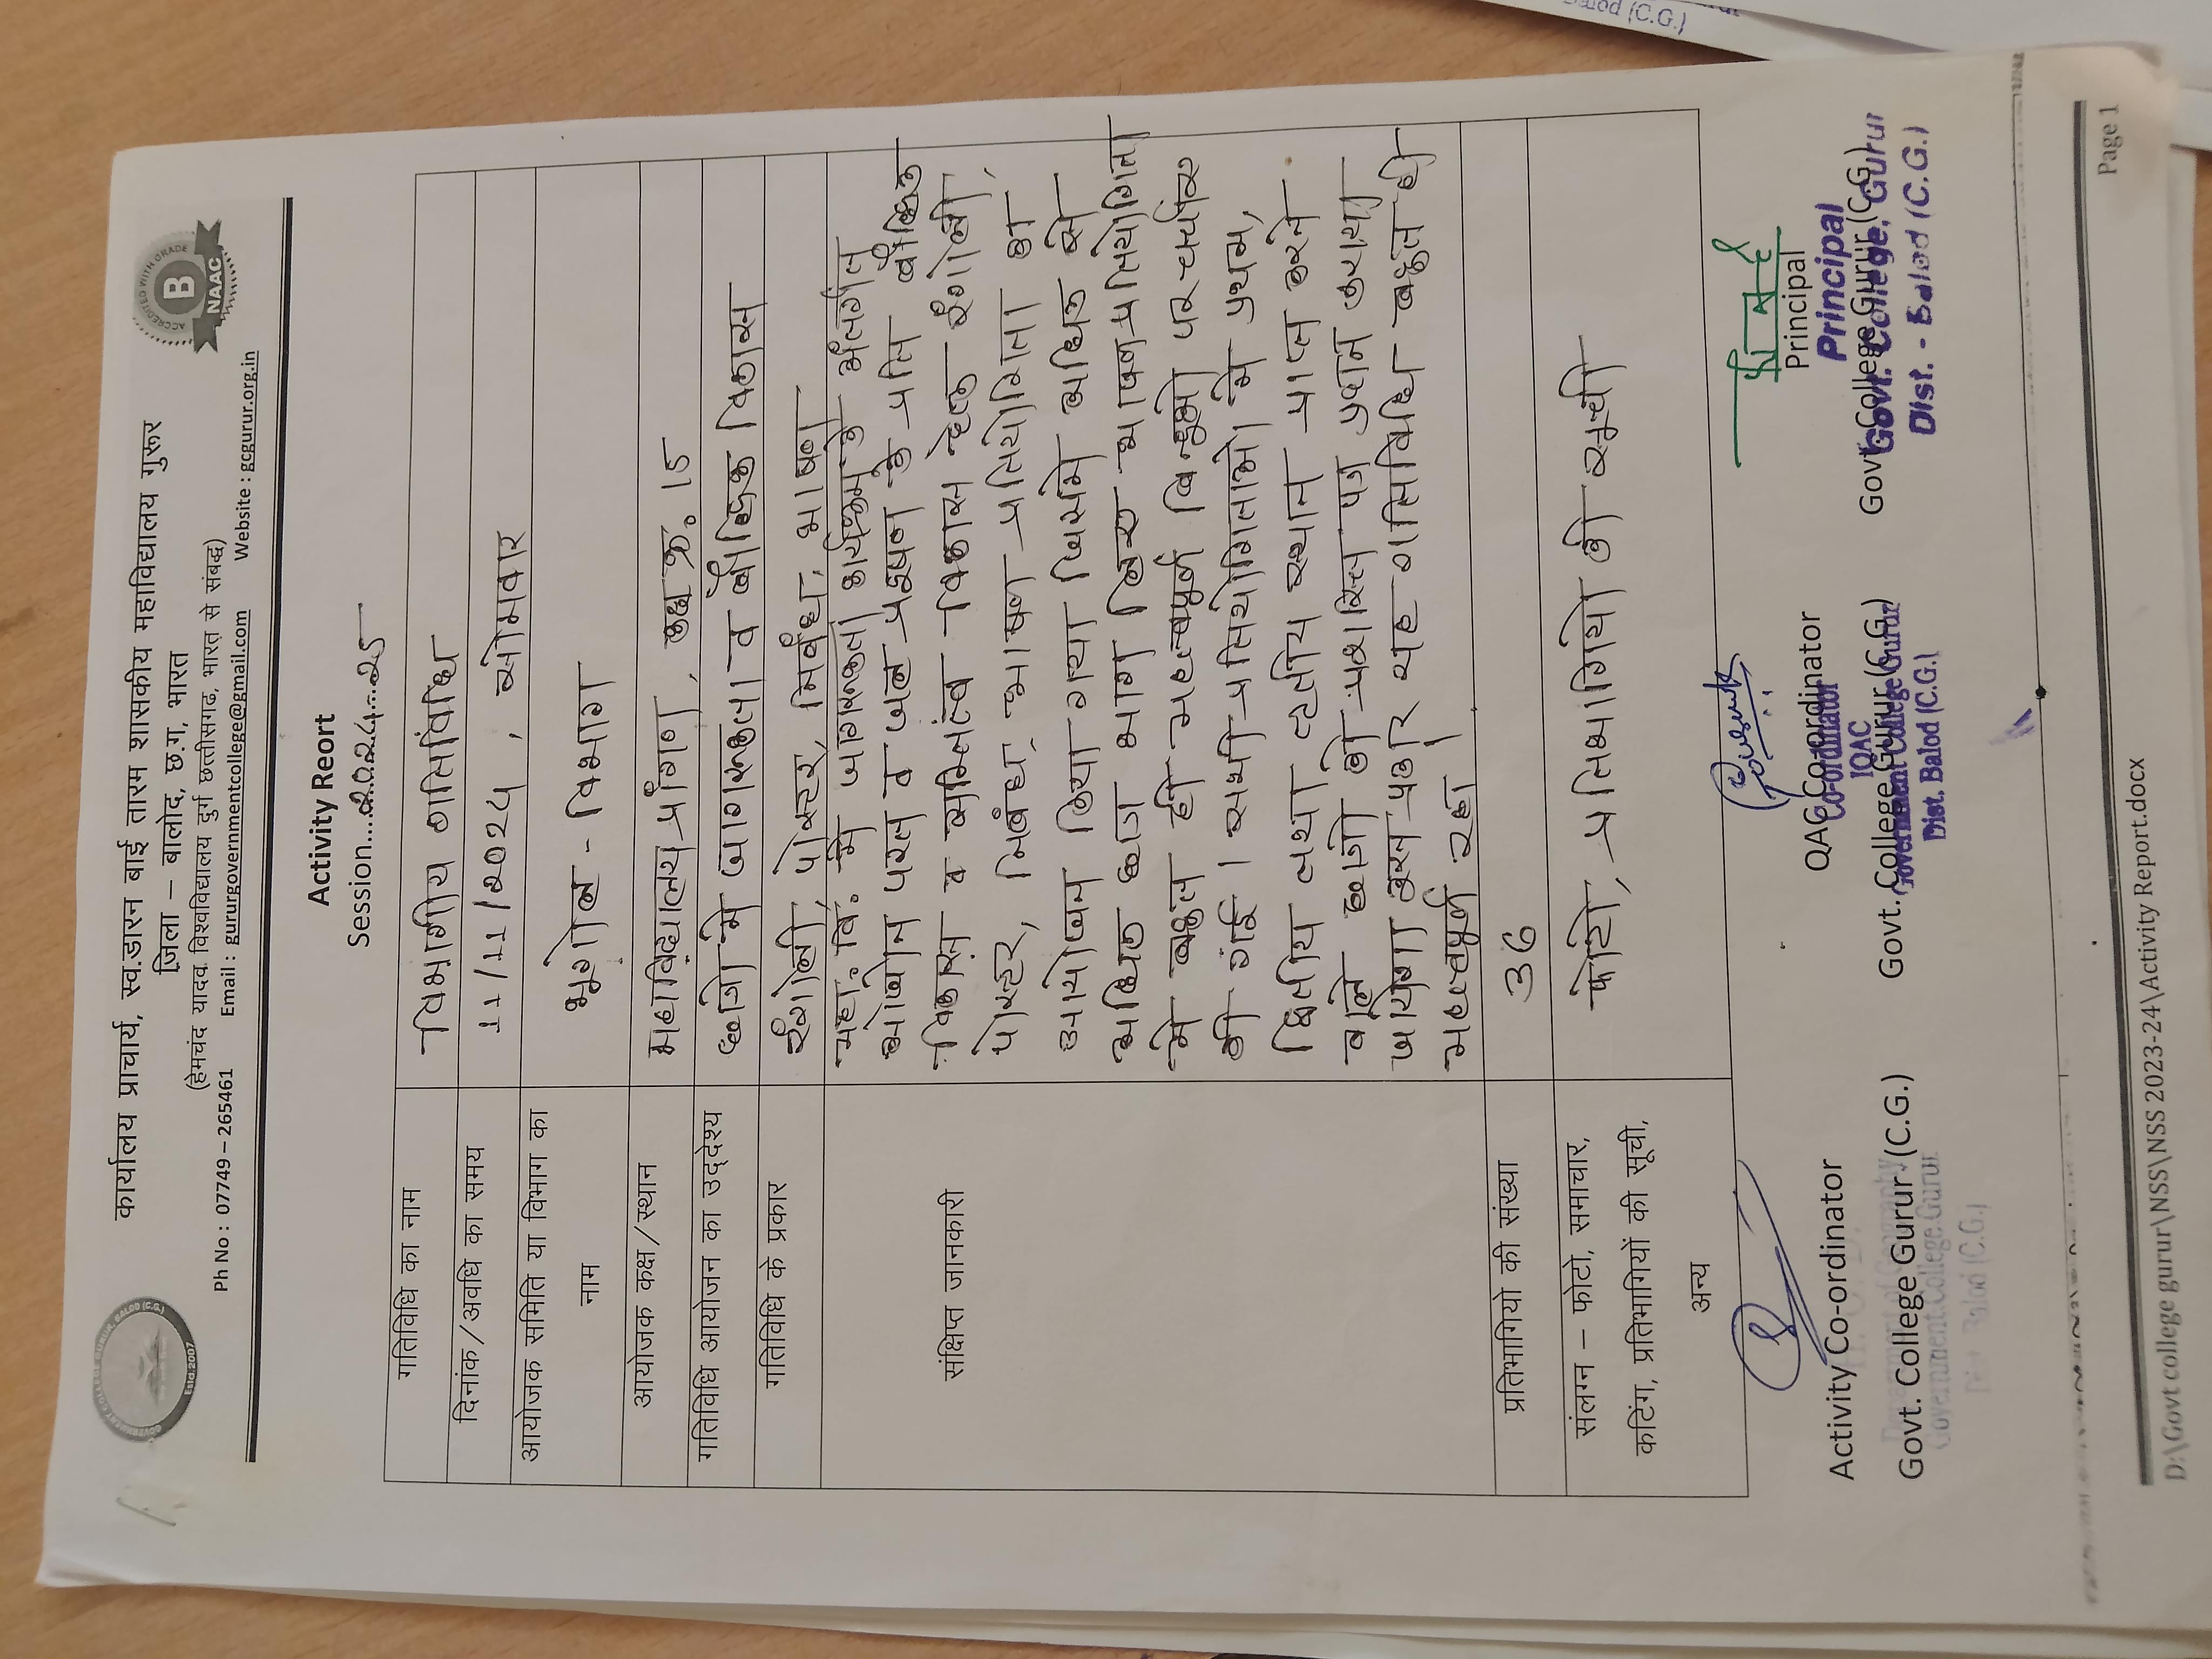 कार्यालय प्राचार्य, स्व.डारन बाई तारम शासकीय महाविद्यालय गुरूर
जिला – बालोद, छ.ग, भारत
(हेमचंद यादव विश्वविद्यालय दुर्ग छत्तीसगढ, भारत से संबद्ध)
Ph No : 07749 – 265461 Email : gururgovernmentcollege@gmail.com Website : gcgurur.org.in
ACCREDITED WITH GRADE
B
NAAC
Estd.2007
Activity Reort
Session....2024-25
गतिविधि का नाम विभागीय गतिविधि
दिनांक/अवधि का समय 11/11/2024, सोमवार
आयोजक समिति या विभाग का
नाम
भूगोल - विभाग
आयोजक कक्ष/स्थान महाविद्यालय प्रांगण, कक्ष क्र. 15
गतिविधि आयोजन का उद्देश्य छात्रो मे जागरूकता व बौद्धिक विकास
गतिविधि के प्रकार रंगोली, पोस्टर, निबंध, भाषण
संक्षिप्त जानकारी
महा. वि. मे जागरूकता कार्यक्रम के अंतर्गत
ओजोन परत व जल प्रदूषण के प्रति बौद्धिक
विकास व व्यक्तित्व विकास हेतु रंगोली,
पोस्टर, निबंध, भाषण प्रतियोगिता का
आयोजन किया गया जिसमे अधिक से
अधिक छात्र भाग लिए भाषण प्रतियोगिता
मे बहुत ही महत्वपूर्ण बिन्दुओ पर चर्चा
की गई। सभी प्रतियोगिताओ मे प्रथम,
द्वितीय तथा तृतीय स्थान प्राप्त करने
वाले छात्रो को प्रशस्ति पत्र प्रदान कराया
जायेगा इस प्रकार यह गतिविधि बहुत ही
महत्वपूर्ण रहा।
प्रतिभागियो की संख्या 36
संलग्न – फोटो, समाचार,
कटिंग, प्रतिभागियों की सूची,
अन्य
फोटो, प्रतिभागियो की सूची
Activity Co-ordinator
Govt. College Gurur (C.G.)
Department of Geography
Government College Gurur
Dist. Balod (C.G.)
QAC Co-ordinator
Govt. College Gurur (C.G.)
Co-ordinator
IQAC
Government College Gurur
Dist. Balod (C.G.)
Principal
Govt. College Gurur (C.G.)
Principal
Govt. College, Gurur
Dist. - Balod (C.G.)
D:\Govt college gurur\NSS\NSS 2023-24\Activity Report.docx Page 1
(C.G.)